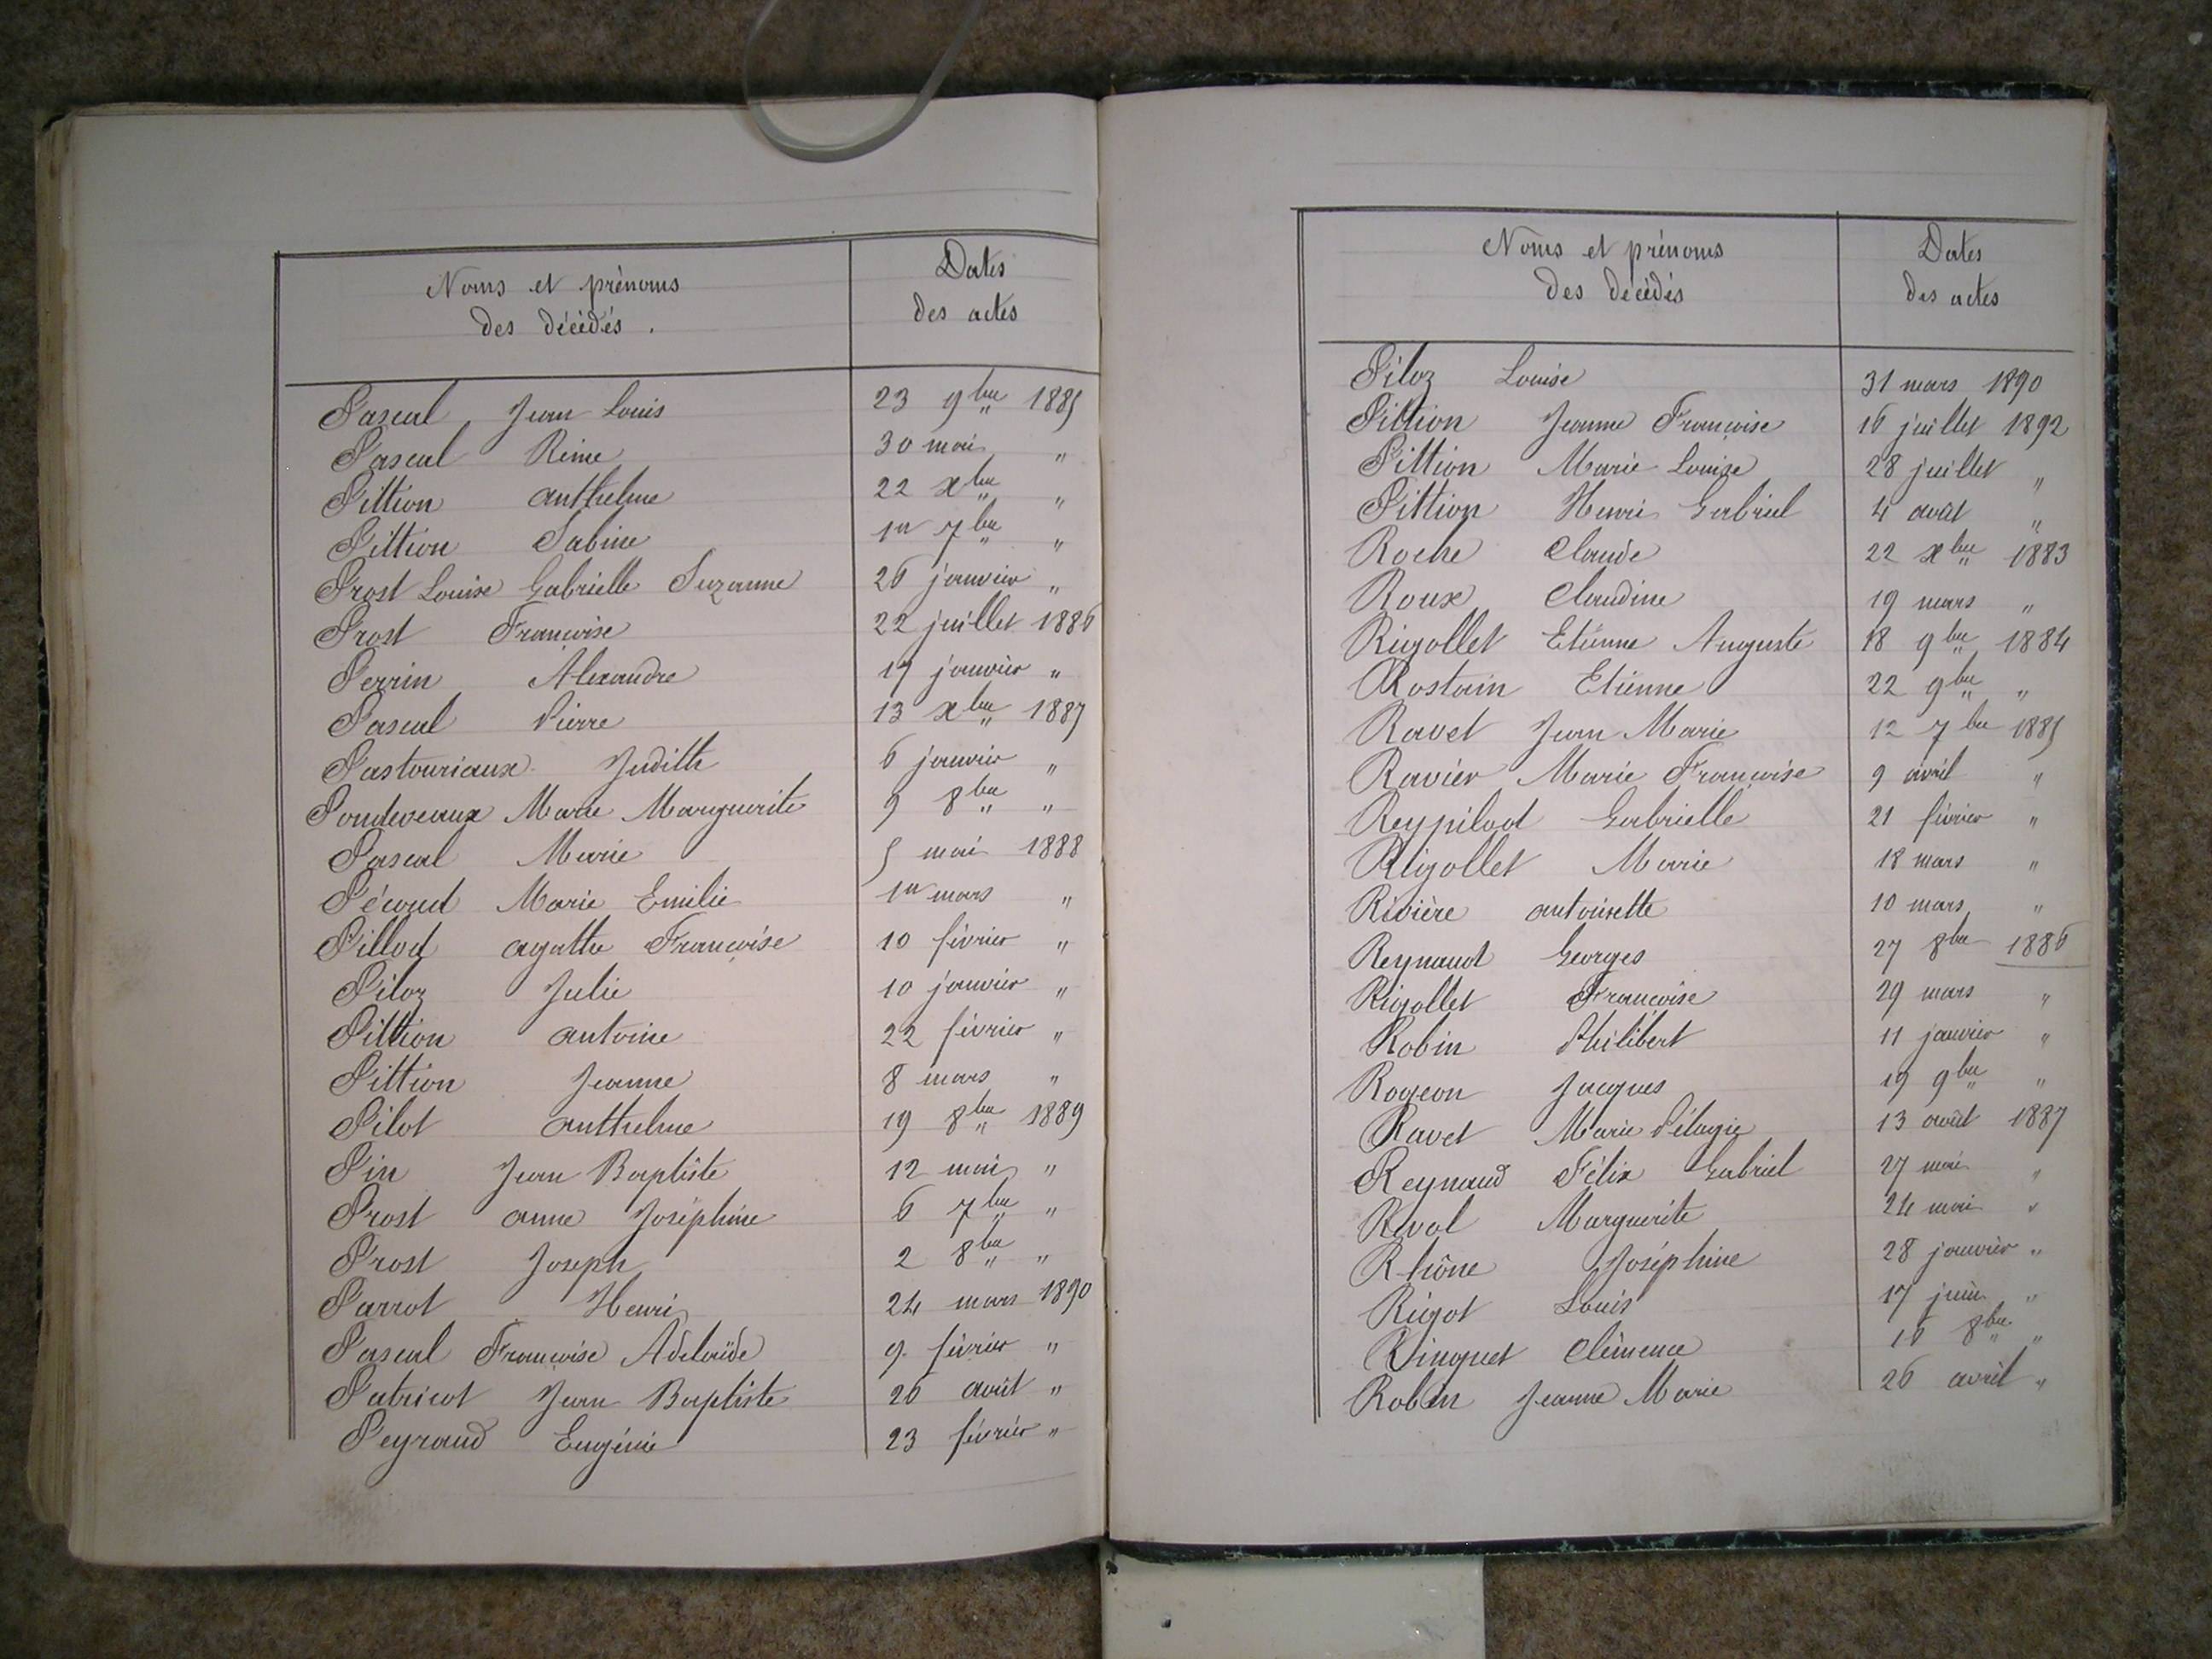 Noms et prénoms
des décédés.
Dates
des actes
Pascal Jean Louis 23 9bre 1885
Pascal Reine 30 mai "
Pittion Anthelme 22 xbre "
Pittion Sabine 1er 7bre "
Prost Louise Gabrielle Suzanne 26 janvier "
Prost Françoise 22 juillet 1886
Perrin Alexandre 17 janvier "
Pascal Pierre 13 xbre 1887
Pastouriaux Judith 6 janvier "
Pondeveaux Marie Marguerite 9 8bre "
Pascal Marie 5 mai 1888
Pécoud Marie Emilie 1er mars "
Pillod agathe Françoise 10 février "
Piloz Julie 10 janvier "
Pittion antoine 22 février "
Pittion Jeanne 8 mars "
Pilot anthelme 19 8bre 1889
Pin Jean Baptiste 12 mai "
Prost anne Joséphine 6 7bre "
Prost Joseph 2 8bre "
Parrot Henri 24 mars 1890
Pascal Françoise Adelaïde 9 février "
Patricot Jean Baptiste 26 août "
Peyraud Eugénie 23 février "
Noms et prénoms
des décédés
Dates
des actes
Piloz Louise 31 mars 1890
Pittion Jeanne Françoise 16 juillet 1892
Pittion Marie Louise 28 juillet "
Pittion Henri Gabriel 4 août "
Roche Claude 22 xbre 1883
Roux Claudine 19 mars "
Rigollet Etienne Auguste 18 9bre 1884
Rostain Etienne 22 9bre "
Ravet Jean Marie 12 7bre 1885
Ravier Marie Françoise 9 avril "
Reypilod Gabrielle 21 février "
Rigollet Marie 18 mars "
Rivière antoinette 10 mars "
Reynaud Georges 27 8bre 1886
Rigollet Françoise 29 mars "
Robin Philibert 11 janvier "
Rogeon Jacques 19 9bre "
Ravet Marie Pélagie 13 août 1887
Reynaud Félix Gabriel 27 mai "
Rival Marguerite 24 mai "
Rhône Joséphine 28 janvier "
Rigot Louis 17 juin "
Rinquet Clémence 16 8bre "
Robin Jeanne Marie 26 avril "